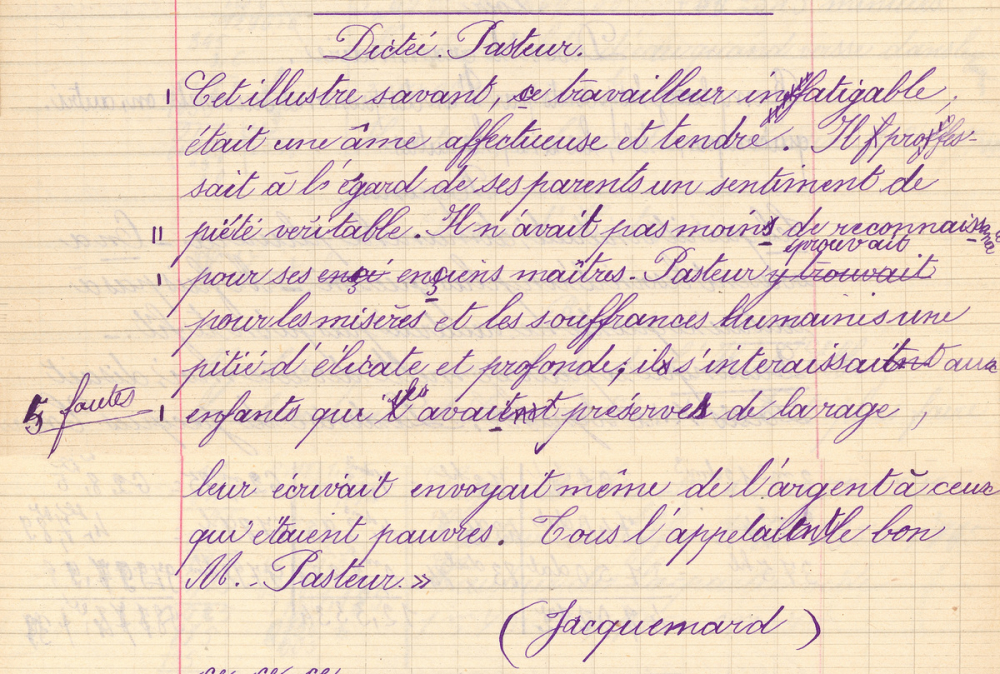 Dictée. Pasteur.
Cet illustre savant, ce travailleur infatigable,
était une âme affectueuse et tendre. Il profes-
sait à l'égard de ses parents un sentiment de
piété véritable. Il n'avait pas moins de reconnaissance
pour ses ençi ençiens maîtres. Pasteur y trouvait éprouvait
pour les misères et les souffrances humaines une
pitié d'élicate et profonde; il s'interaissait aux
5 fautes
enfants qu'il avait préservés de la rage,
leur écrivait envoyait même de l'argent à ceux
qui étaient pauvres. Tous l'appelaient le bon
M. Pasteur. »
(Jacquemard)